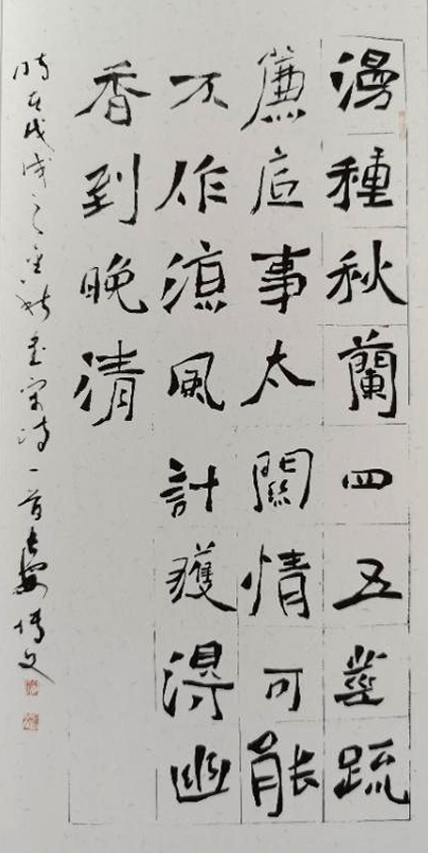 漫種秋蘭四五莖疏
簾底事太關情可能
不作涼風計獲得幽
香到晚清
時在戊戌之金秋書宋詩一首長安